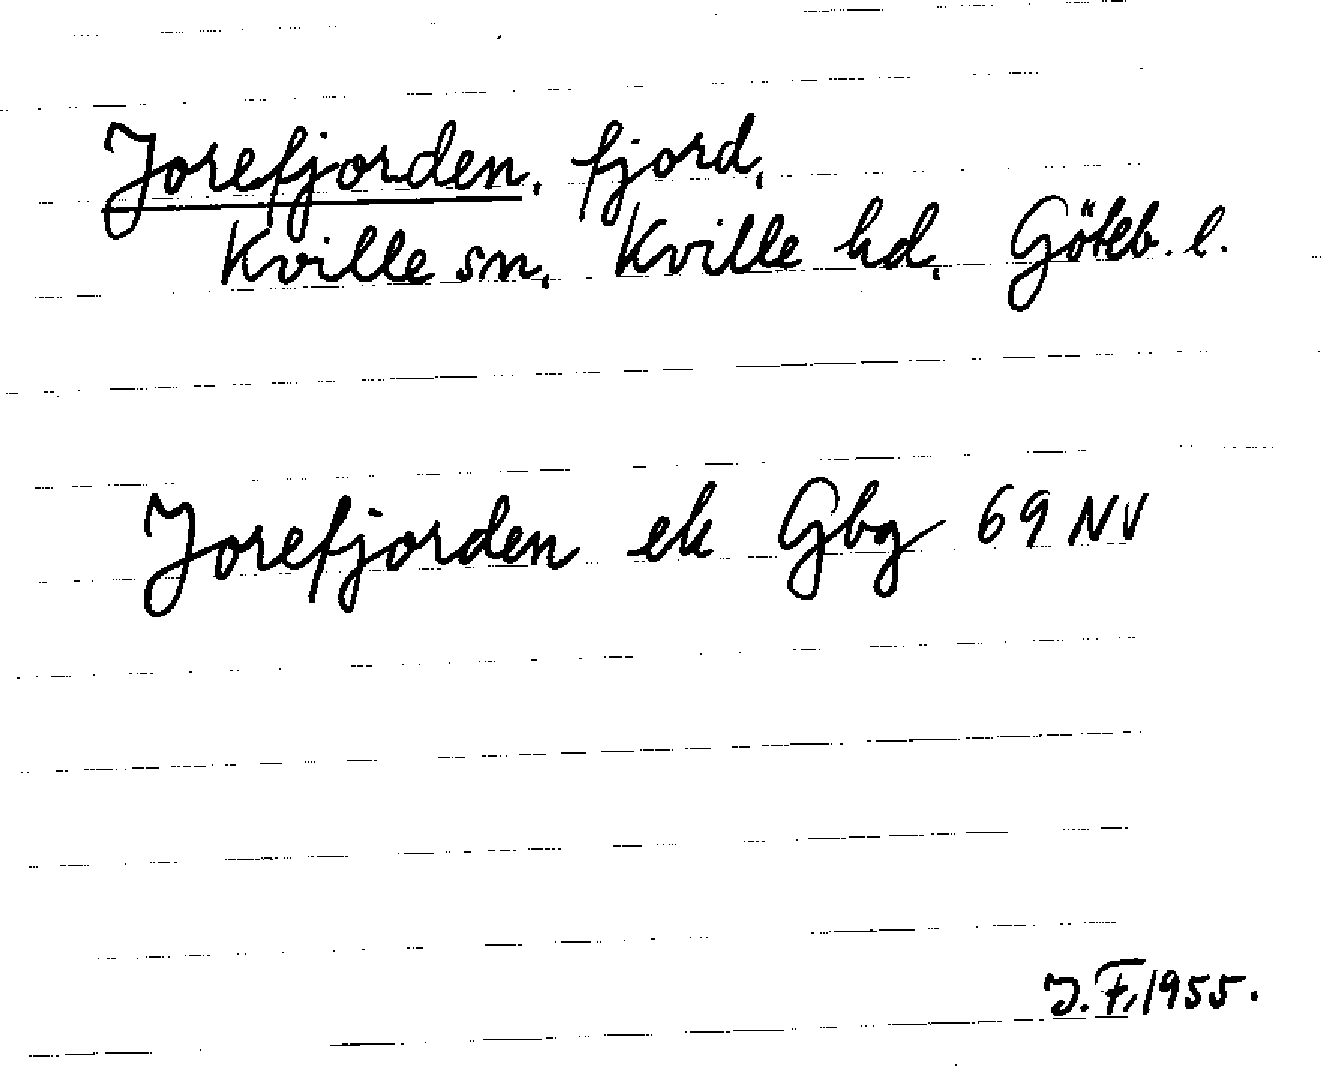 Jorefjorden, fjord,
Kville sn, Kville hd, Göteb. l.
Jorefjorden ek Gbg 69 NV
J.F. 1955.